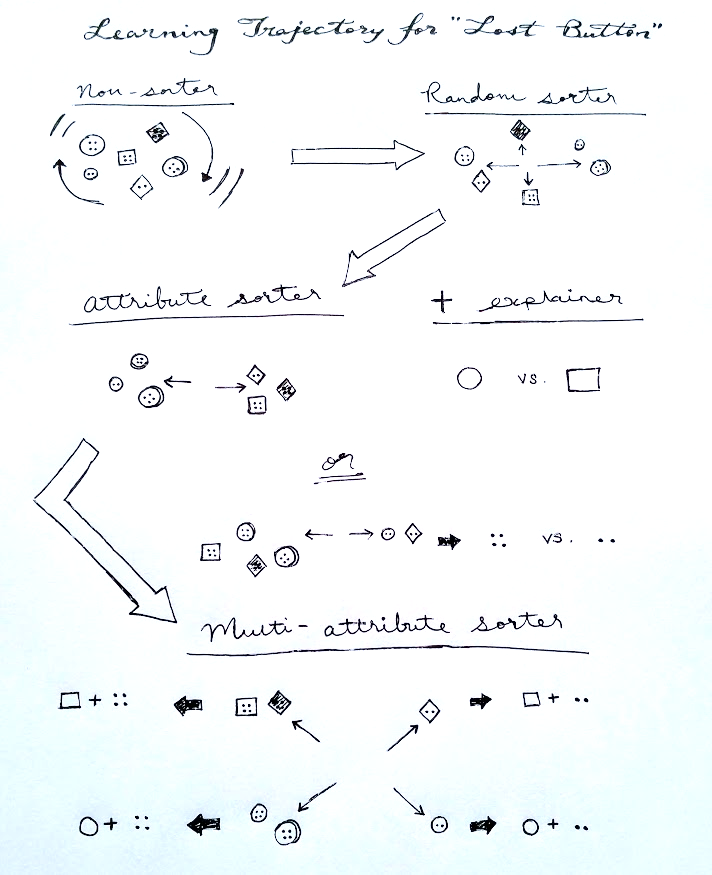 Learning Trajectory for "Lost Button"
Non-sorter
Random sorter
attribute sorter
+ explainer
vs.
or
vs.
Multi-attribute sorter
+
+
+
+